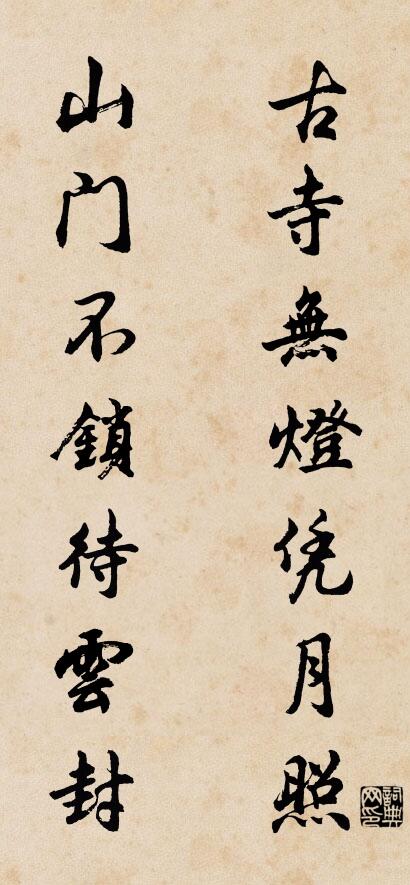 古寺無燈凭月照
山门不鎖待雲封
詞典网印